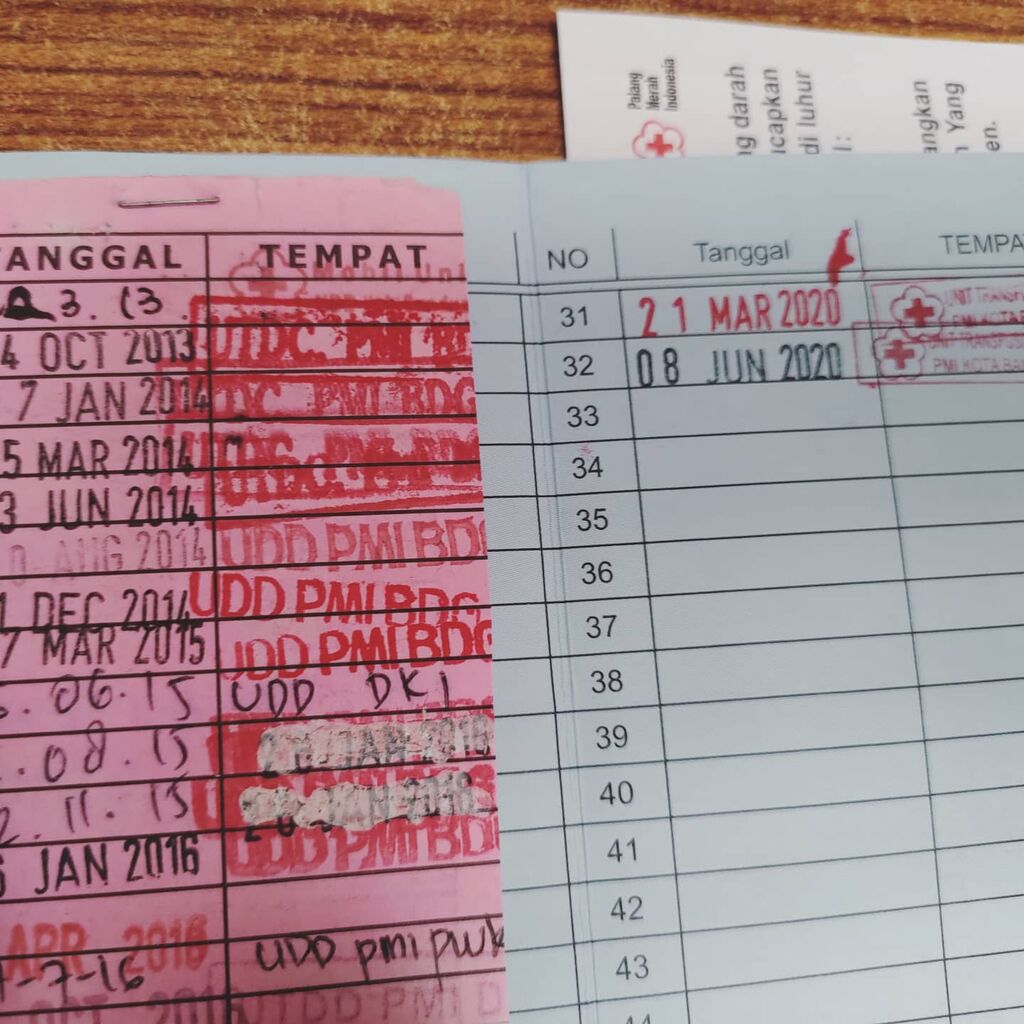 Palang
Merah
Indonesia
g darah
capkan
di luhur
:
angkan
Yang
en.
ANGGAL TEMPAT
3. 13
4 OCT 2013 UTDC PMI B
7 JAN 2014 DC PMI BDG
5 MAR 2014
3 JUN 2014
0 AUG 2014 UDD PMI BD
1 DEC 2014 UDD PMI BDG
7 MAR 2015 UDD PMI BDG
06.15 UDD DKI
.08.15 JAN 2016
2.11.15
JAN 2016 UDD PMI BD
APR 2016
-7-16 UDD pmi pwk
OCT UDD PMI D
NO Tanggal TEMPA
31 21 MAR 2020 UNIT TRANSF
PMI KOTA B
32 08 JUN 2020 UNIT TRANSFUS
PMI KOTA BA
33
34
35
36
37
38
39
40
41
42
43
44